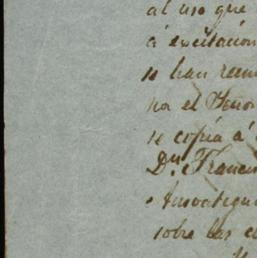 al uso que
á excitacion
se han reun
por el Señor
se copia á
Dn. Franci
sobre las c